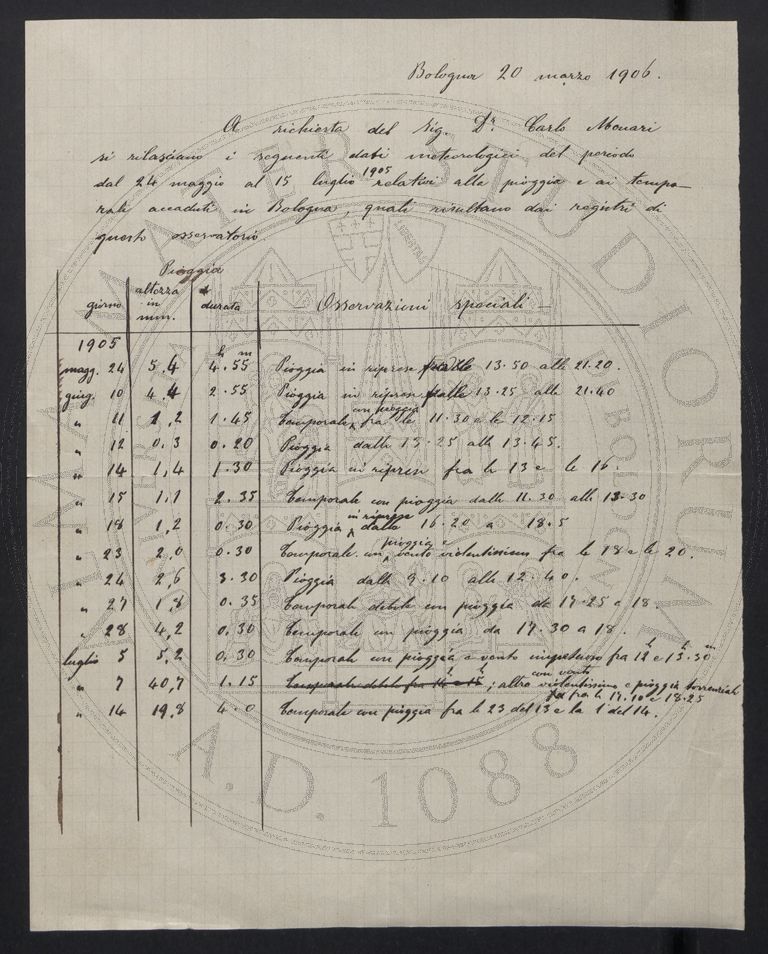 Bologna 20 marzo 1906.
A richiesta del Sig. Dr. Carlo Monari
si rilasciano i seguenti dati meteorologici del periodo
dal 24 maggio al 15 luglio 1905 relativi alla pioggia e ai tempo-
rali accaduti in Bologna, quali risultano dai registri di
questo osservatorio.
Pioggia
giorno altezza in mm. durata Osservazioni speciali
1905
magg. 24 5,4 4h.55m Pioggia in riprese dalle 13.50 alle 21.20.
giug. 10 4,4 2.55 Pioggia in riprese dalle 13.25 alle 21.40
" 11 1,2 1.45 Temporale con pioggia fra le 11.30 e le 12.15
" 12 0,3 0.20 Pioggia dalle 13.25 alle 13.45.
" 14 1,4 1.30 Pioggia in riprese fra le 13 e le 16.
" 15 1,1 2.35 Temporale con pioggia dalle 11.30 alle 13.30
" 18 1,2 0.30 Pioggia in riprese dalle 16.20 a 18.5
" 23 2,0 0.30 Temporale con pioggia e vento violentissimo fra le 18 e le 20.
" 24 2,6 3.30 Pioggia dalle 9.10 alle 12.40.
" 27 1,8 0.35 Temporale debole con pioggia da 17.25 a 18.
" 28 4,2 0.30 Temporale con pioggia da 17.30 a 18.
luglio 5 5,2 0.30 Temporale con pioggia e vento impetuoso fra 12h e 13h.30m
" 7 40,7 1.15 Temporale debole fra 14h e 15h; altro con vento violentissimo e pioggia torrenziale
fra le 17.40 e 18.25
" 14 19,8 4.0 Temporale con pioggia fra le 23 del 13 e la 1 del 14.
ALMA MATER STUDIORUM
A.D. 1088